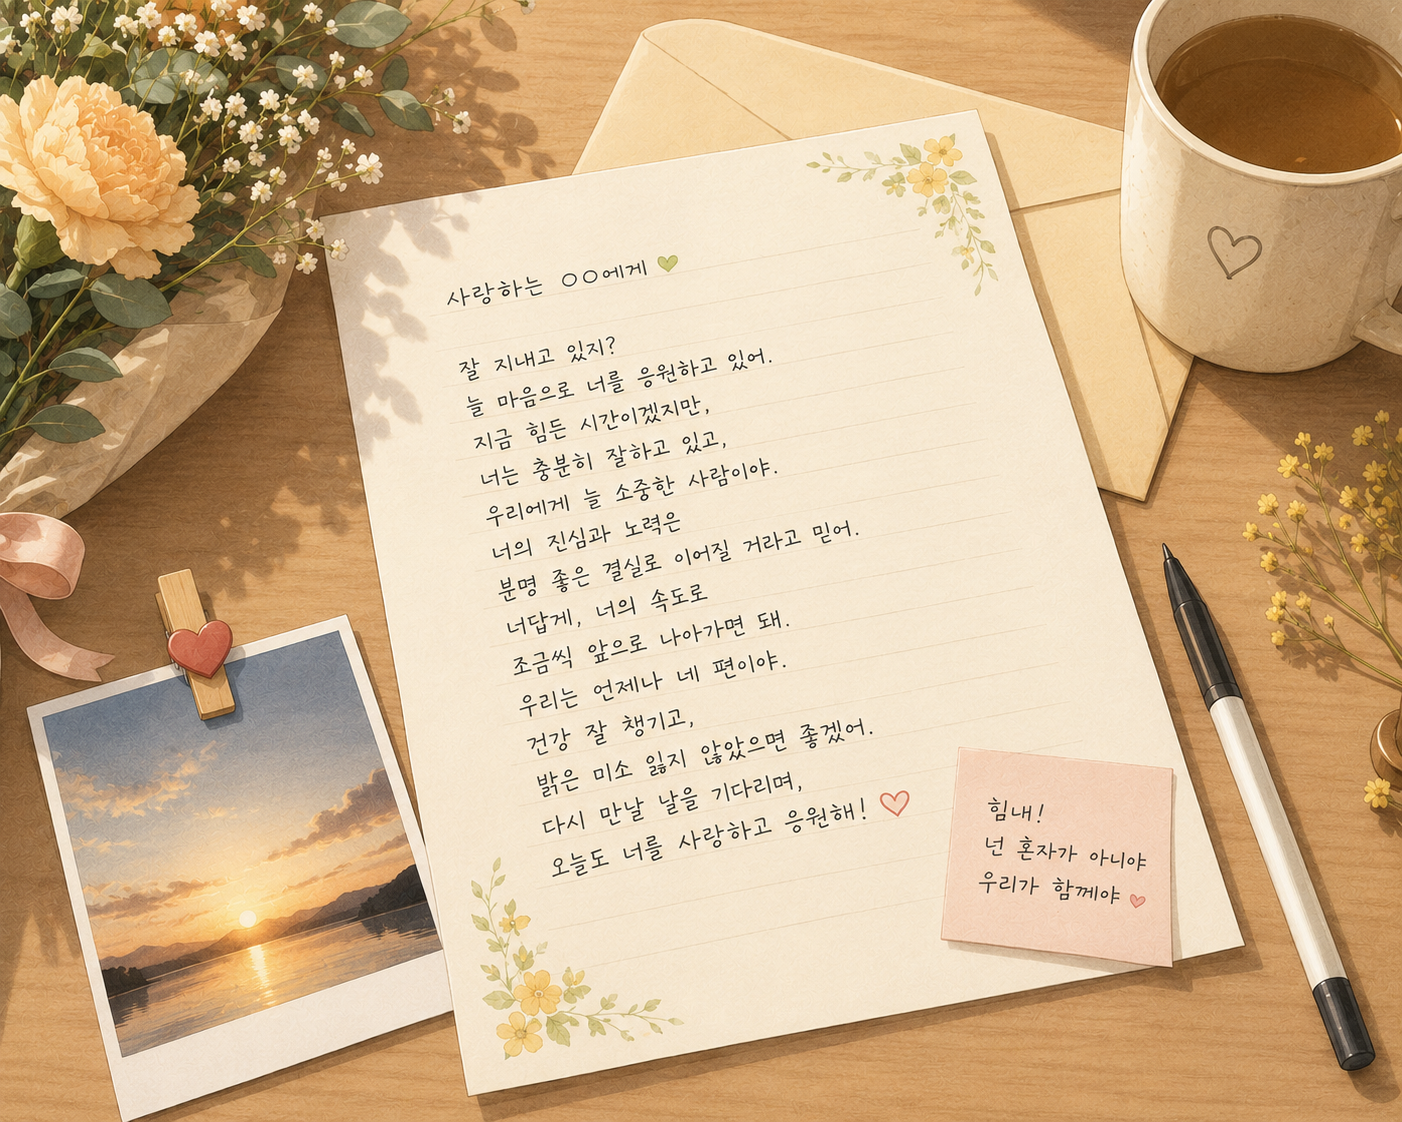 사랑하는 ○○에게 💚
잘 지내고 있지?
늘 마음으로 너를 응원하고 있어.
지금 힘든 시간이겠지만,
너는 충분히 잘하고 있고,
우리에게 늘 소중한 사람이야.
너의 진심과 노력은
분명 좋은 결실로 이어질 거라고 믿어.
너답게, 너의 속도로
조금씩 앞으로 나아가면 돼.
우리는 언제나 네 편이야.
건강 잘 챙기고,
밝은 미소 잃지 않았으면 좋겠어.
다시 만날 날을 기다리며,
오늘도 너를 사랑하고 응원해! ♡
힘내!
넌 혼자가 아니야
우리가 함께야 ♡